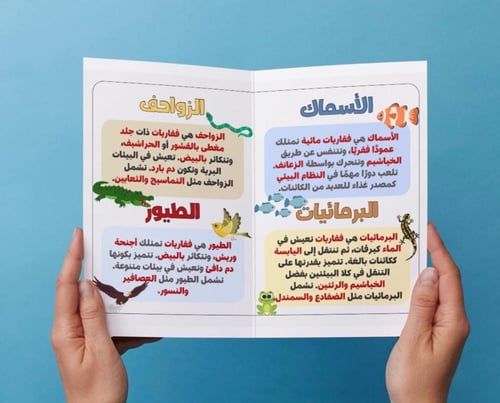 الأسماك
الأسماك هي فقاريات مائية تمتلك
عمودًا فقريًا، وتتنفس عن طريق
الخياشيم وتتحرك بواسطة الزعانف.
تلعب دورًا مهمًا في النظام البيئي
كمصدر غذاء للعديد من الكائنات.
البرمائيات
البرمائيات هي فقاريات تعيش في
الماء كيرقات، ثم تنتقل إلى اليابسة
ككائنات بالغة. تتميز بقدرتها على
التنقل في كلا البيئتين بفضل
الخياشيم والرئتين. تشمل
البرمائيات مثل الضفادع والسمندل
الزواحف
الزواحف هي فقاريات ذات جلد
مغطى بالقشور أو الحراشيف،
وتتكاثر بالبيض. تعيش في البيئات
البرية وتكون دم بارد. تشمل
الزواحف مثل التماسيح والثعابين.
الطيور
الطيور هي فقاريات تمتلك أجنحة
وريش، وتتكاثر بالبيض. تتميز بكونها
دم دافئ وتعيش في بيئات متنوعة.
تشمل الطيور مثل العصافير
والنسور.